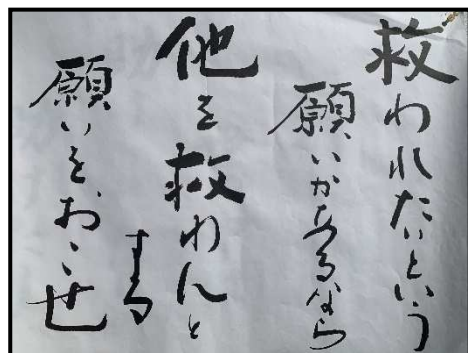 救われたいという
願いがあるなら
他を救わんと
する
願いを、おこせ